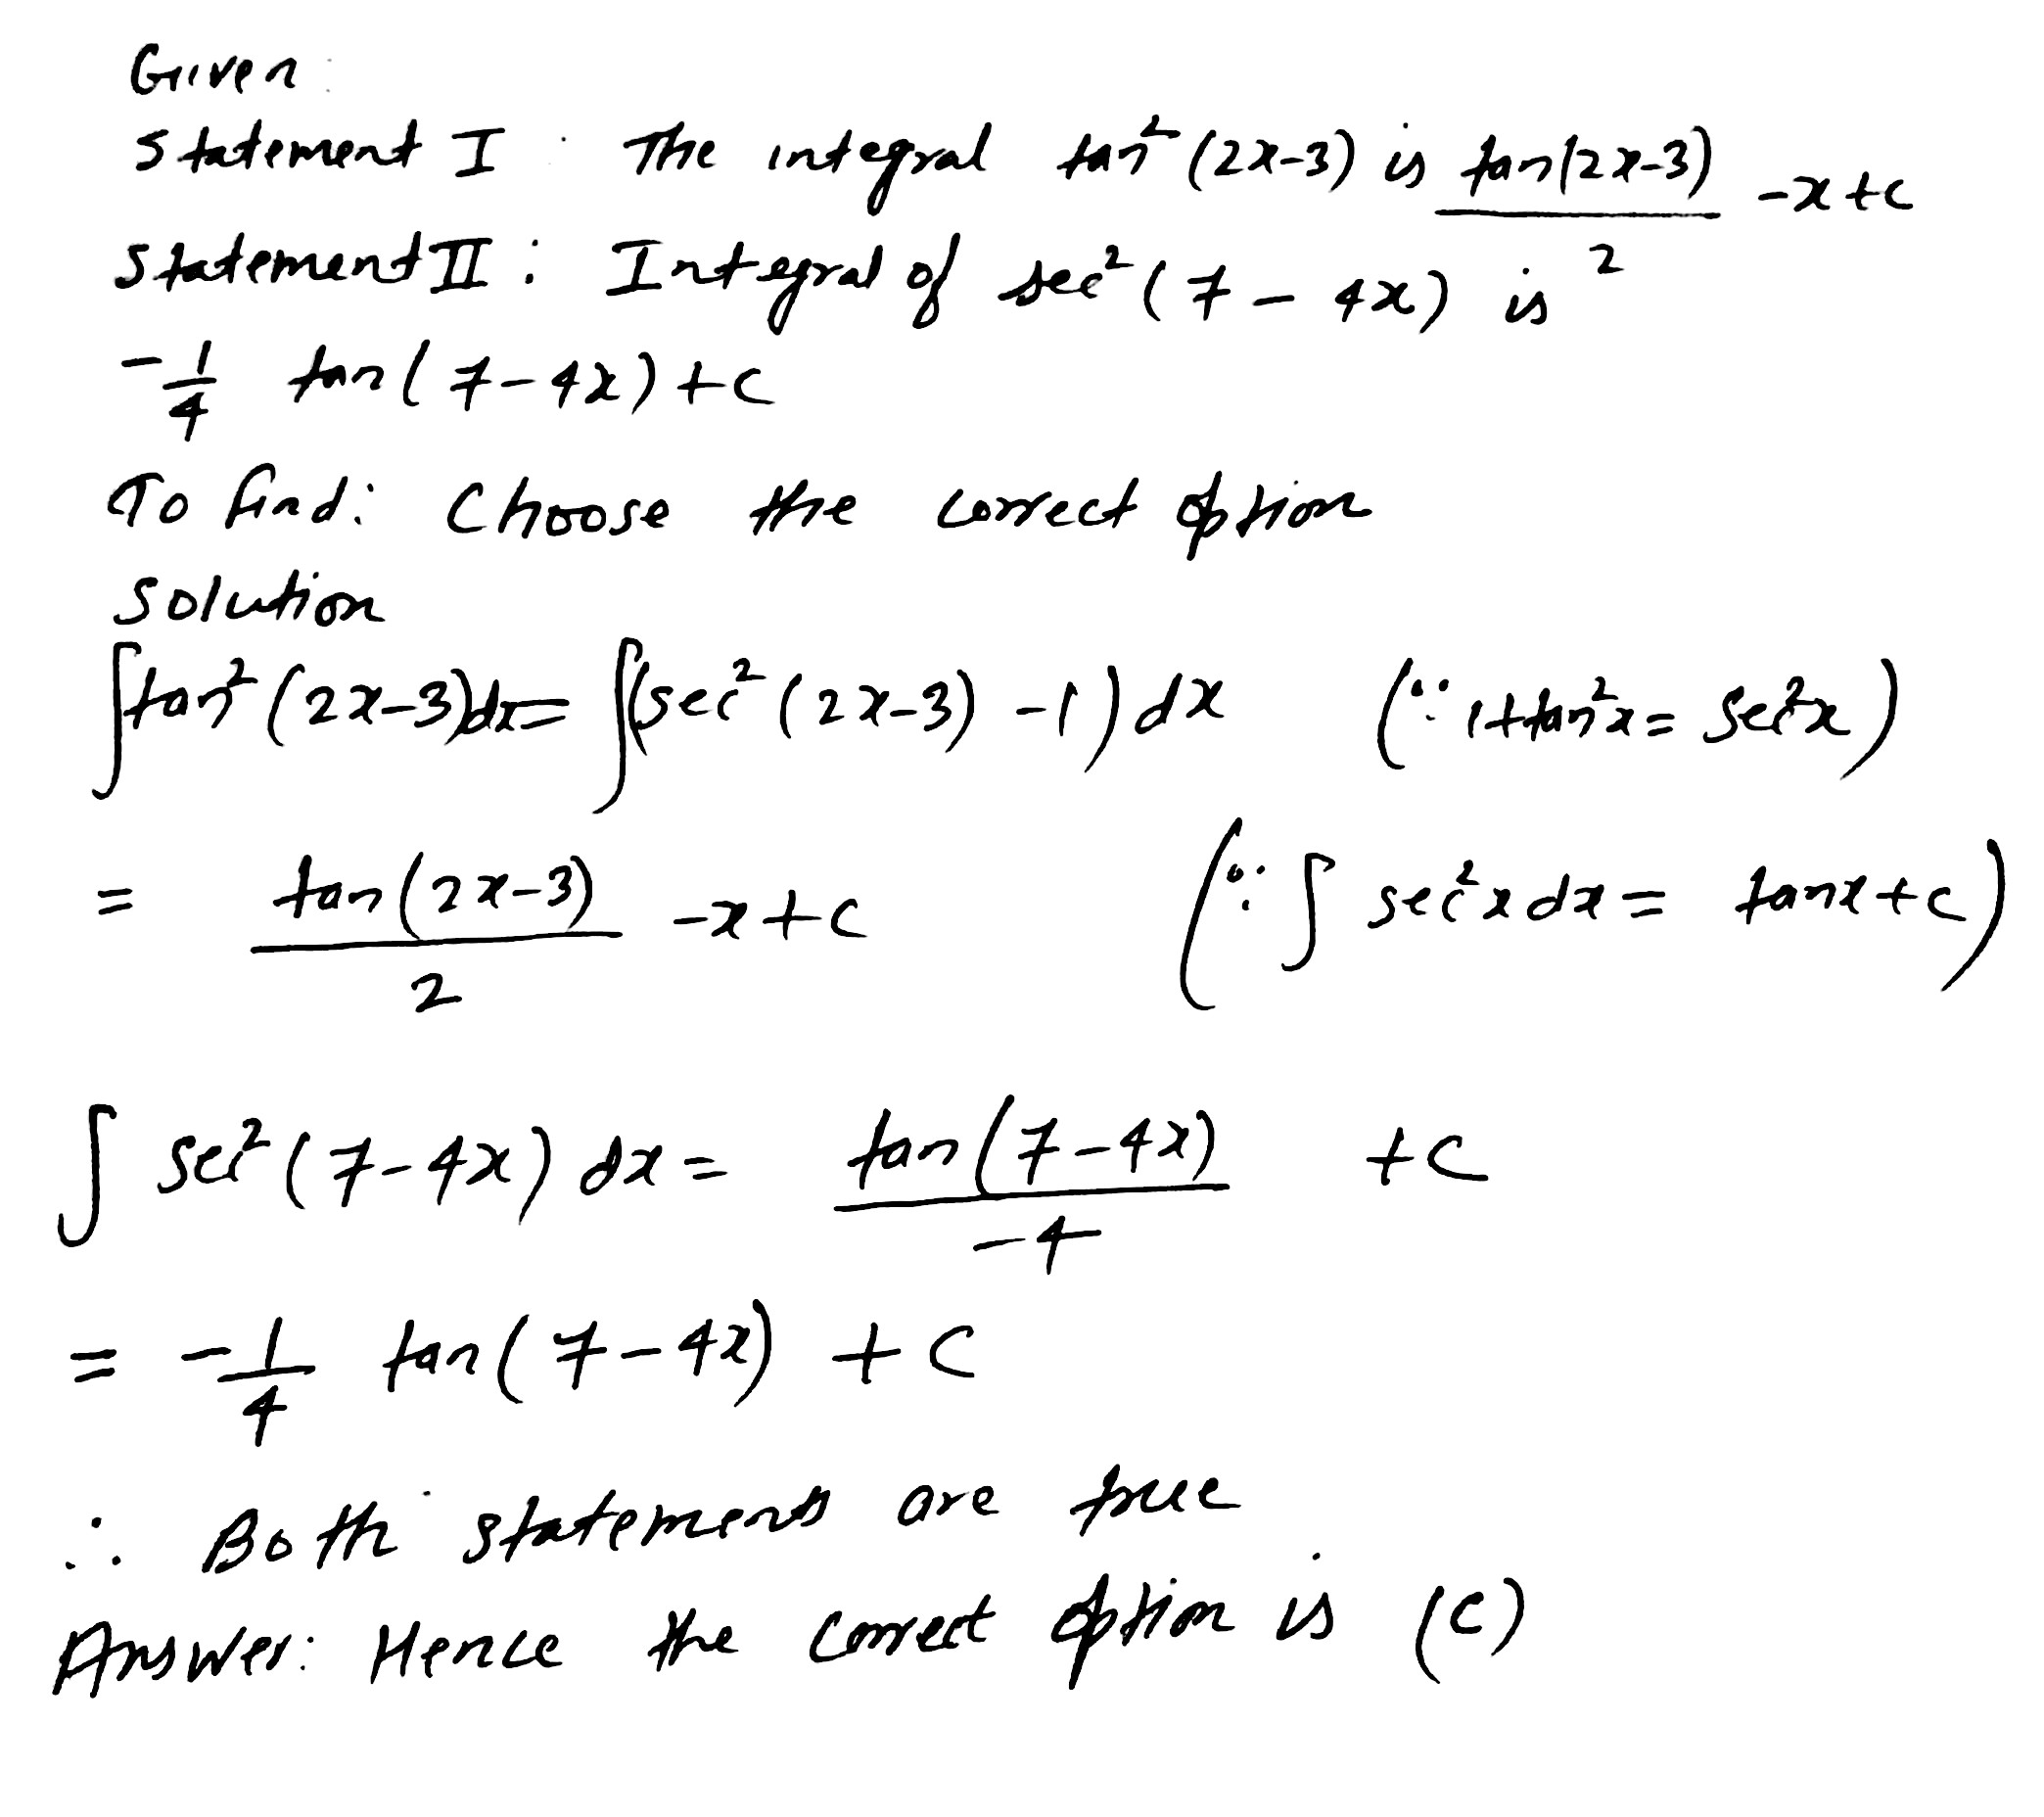 Given:
Statement I : The integral tan²(2x-3) is tan(2x-3)/2 -x+c
Statement II : Integral of sec²(7-4x) is
-1/4 tan(7-4x)+c
To find: Choose the correct option
Solution
∫tan²(2x-3)dx= ∫(sec²(2x-3)-1)dx (∵ 1+tan²x= sec²x)
= tan(2x-3)/2 -x+c (∵ ∫sec²x dx= tanx+c)
∫ sec²(7-4x) dx= tan(7-4x)/-4 +c
= -1/4 tan(7-4x) +c
∴ Both statements are true
Answer: Hence the correct option is (C)